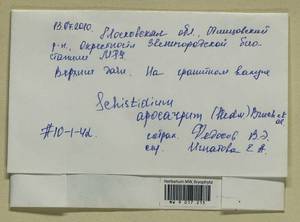 13.07.2010. Московская обл., Одинцовский
р-н, окрестности Звенигородской био-
станции МГУ
Верхние дачи. На гранитном валуне
Schistidium
apocarpum (Hedw.) Bruch et al.
#10-1-42
собрал Федосов В.Э.
опр. Игнатова Е.А.
Herbarium MW, Bryophyta